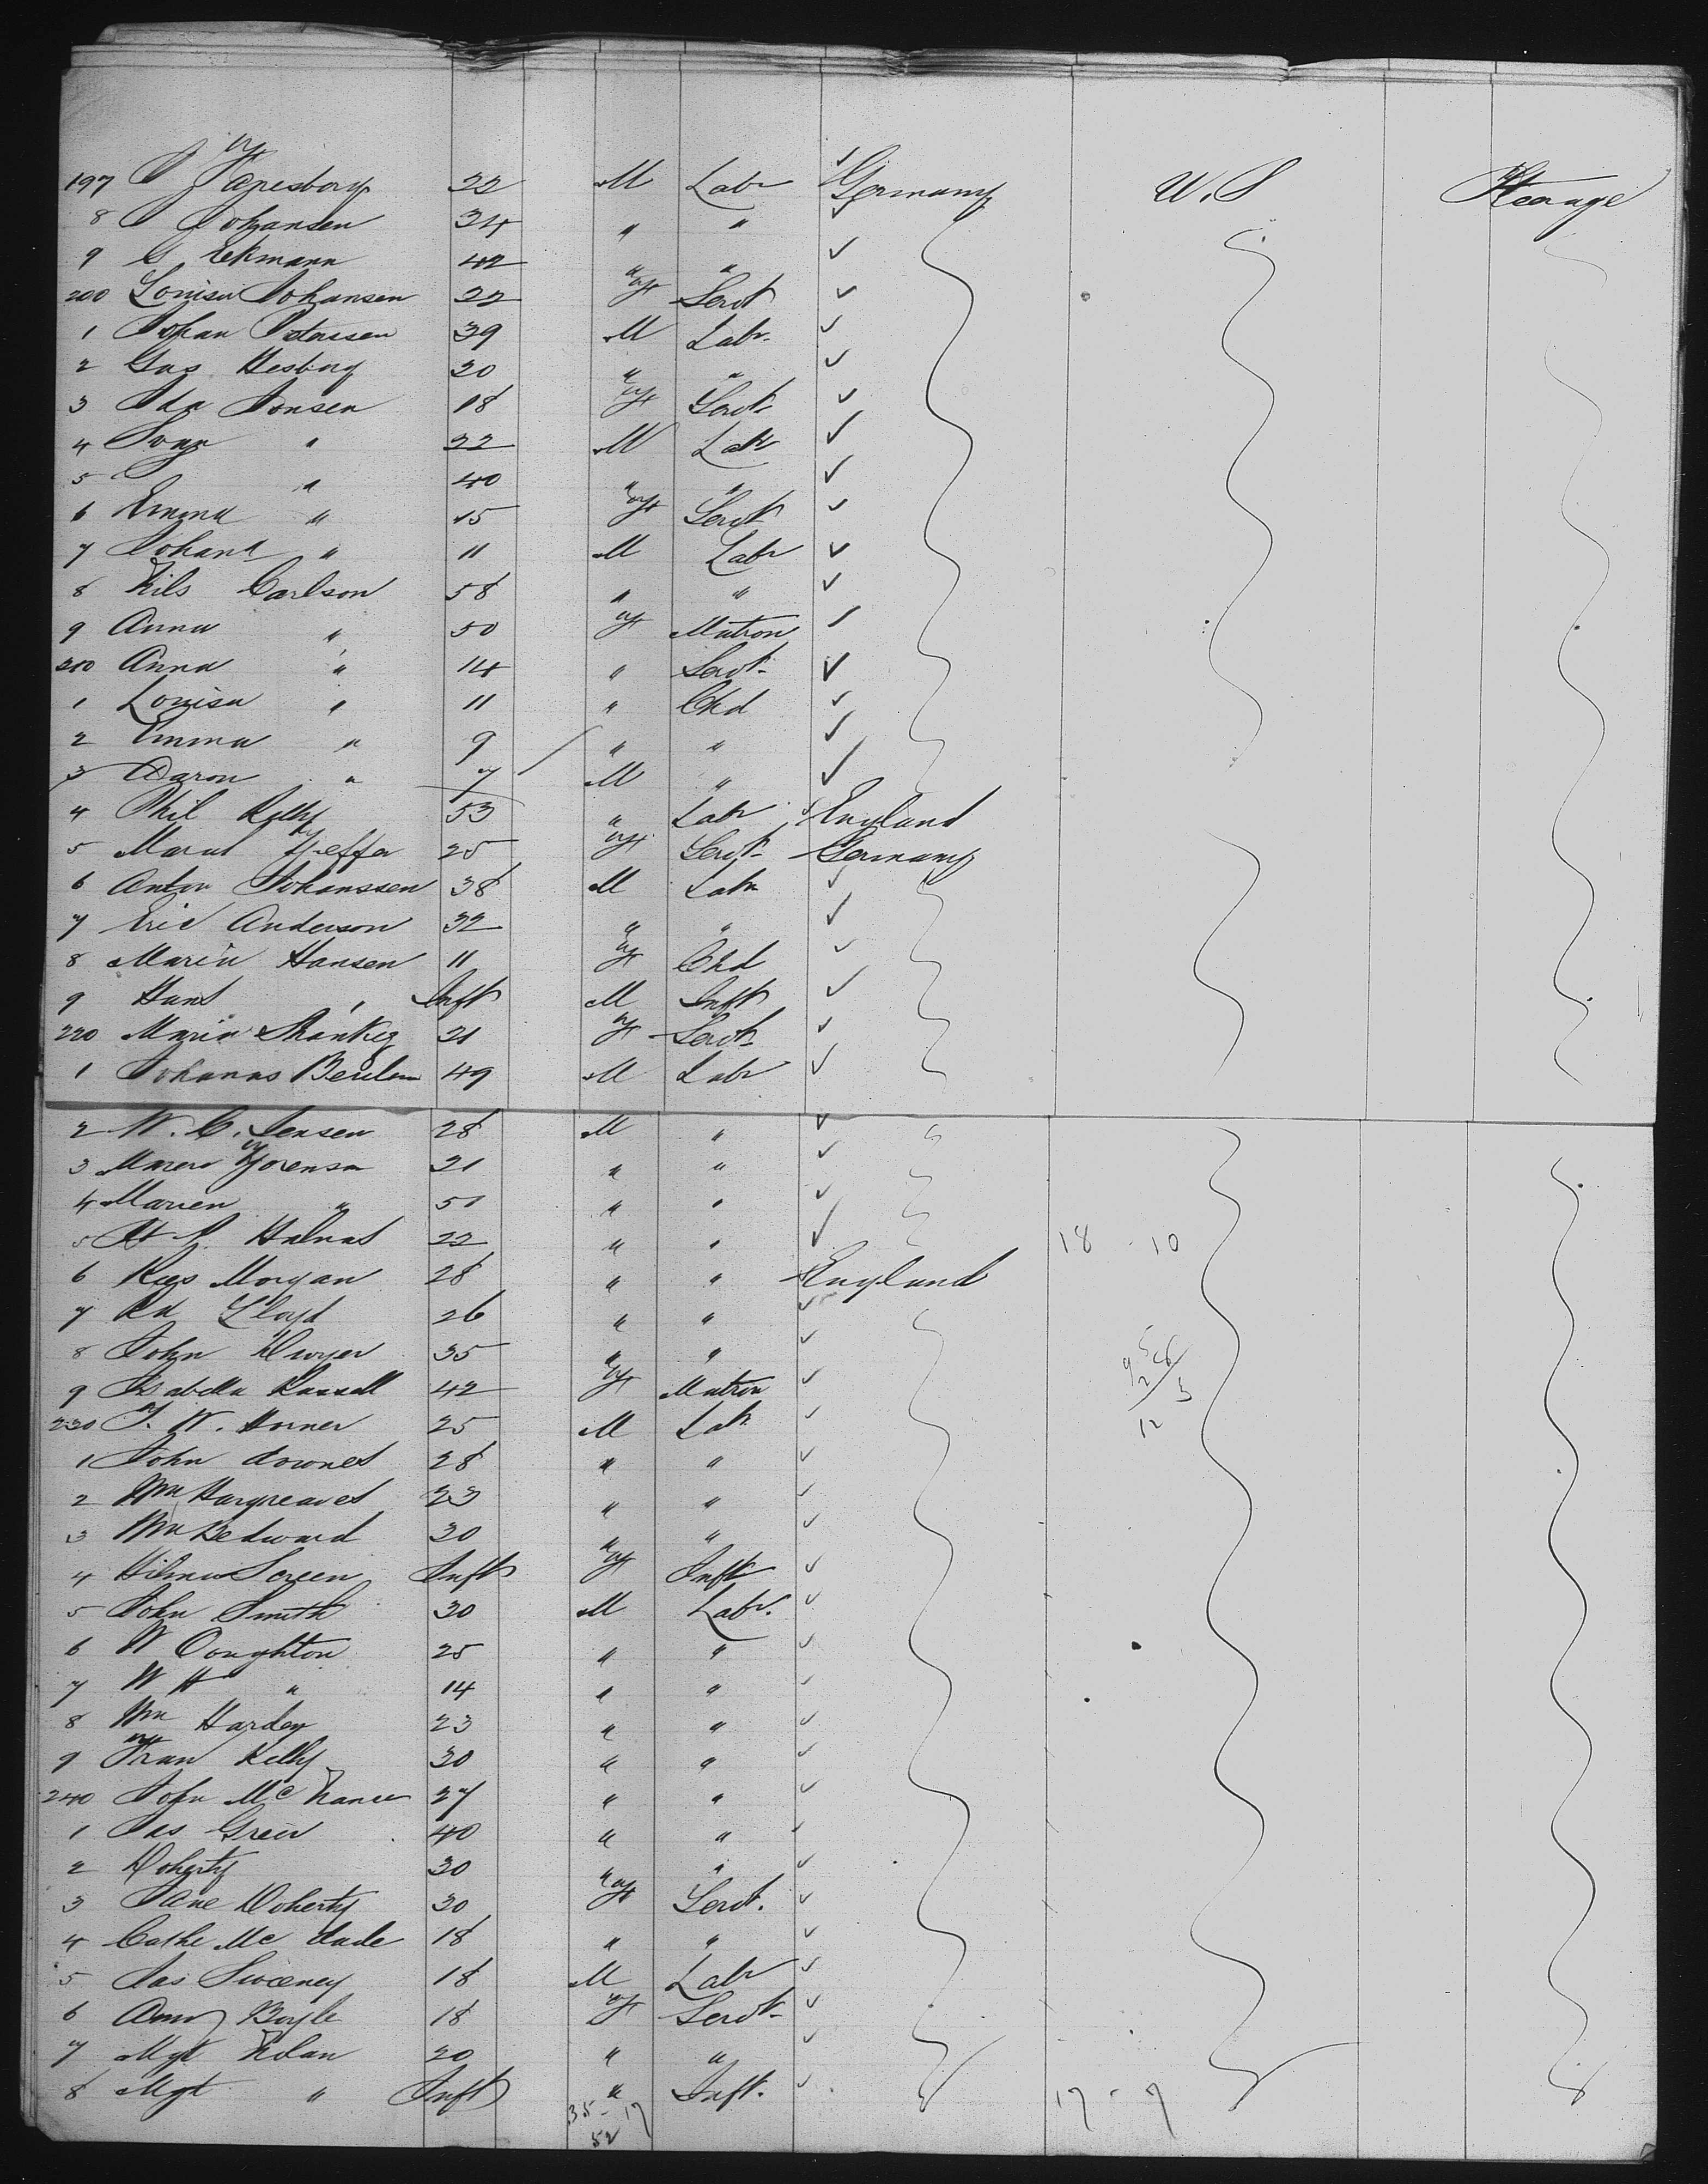 197 22 M Labr Germany U.S Steerage
8 J Johansen 34 " "
9 G Ekmann 42 " "
200 Louisa Johansen 22 F Servt
1 Johan Petersen 39 M Labr.
2 Gus Hesborg 30 " "
3 Ida Jonsen 18 F Servt
4 Svan " 22 M Labr
5 " 40 " "
6 Emma " 15 F Servt
7 Johana " 11 M Labr
8 Nils Carlson 58 " "
9 Anna " 50 F Matron
210 Anna " 14 " Servt
1 Louisa " 11 " Chd
2 Emma " 9 " "
3 Aaron " 7 M "
4 Phil Kelly 53 " Labr England
5 25 F Servt Germany
6 Anton Johanssen 38 M Labr
7 Eric Anderson 32 " "
8 Maria Hansen 11 F Chd
9 Hans " Inft M Inft
220 Maria 21 F Servt
1 Johanas 49 M Labr
2 W. C. Jensen 28 M "
3 21 " "
4 Maren " 51 " "
5 22 " " 18 - 10
6 Rees Morgan 28 " " England
7 Ed Lloyd 26 " "
8 John Dwyer 35 " "
9 Isabella Russell 42 F Matron
230 F. W. Horner 25 M Labr
1 John Downes 28 " "
2 Wm Hargreaves 23 " "
3 Wm Bedward 30 " "
4 Inft F Inft
5 John Smith 30 M Labr.
6 W Coughton 25 " "
7 W H " 14 " "
8 Wm Harden 23 " "
9 Fran Kelly 30 " "
240 John Mc 27 " "
1 Jas Greer 40 " "
2 Doherty 30 " "
3 Jane Doherty 30 F Servt.
4 Cathe Mc Dade 18 " "
5 Jas Sweeney 18 M Labr
6 Boyle 18 F Servt
7 Mgt Nolan 20 " "
8 Mgt " Inft " Inft. 17 - 7
35 - 17
52